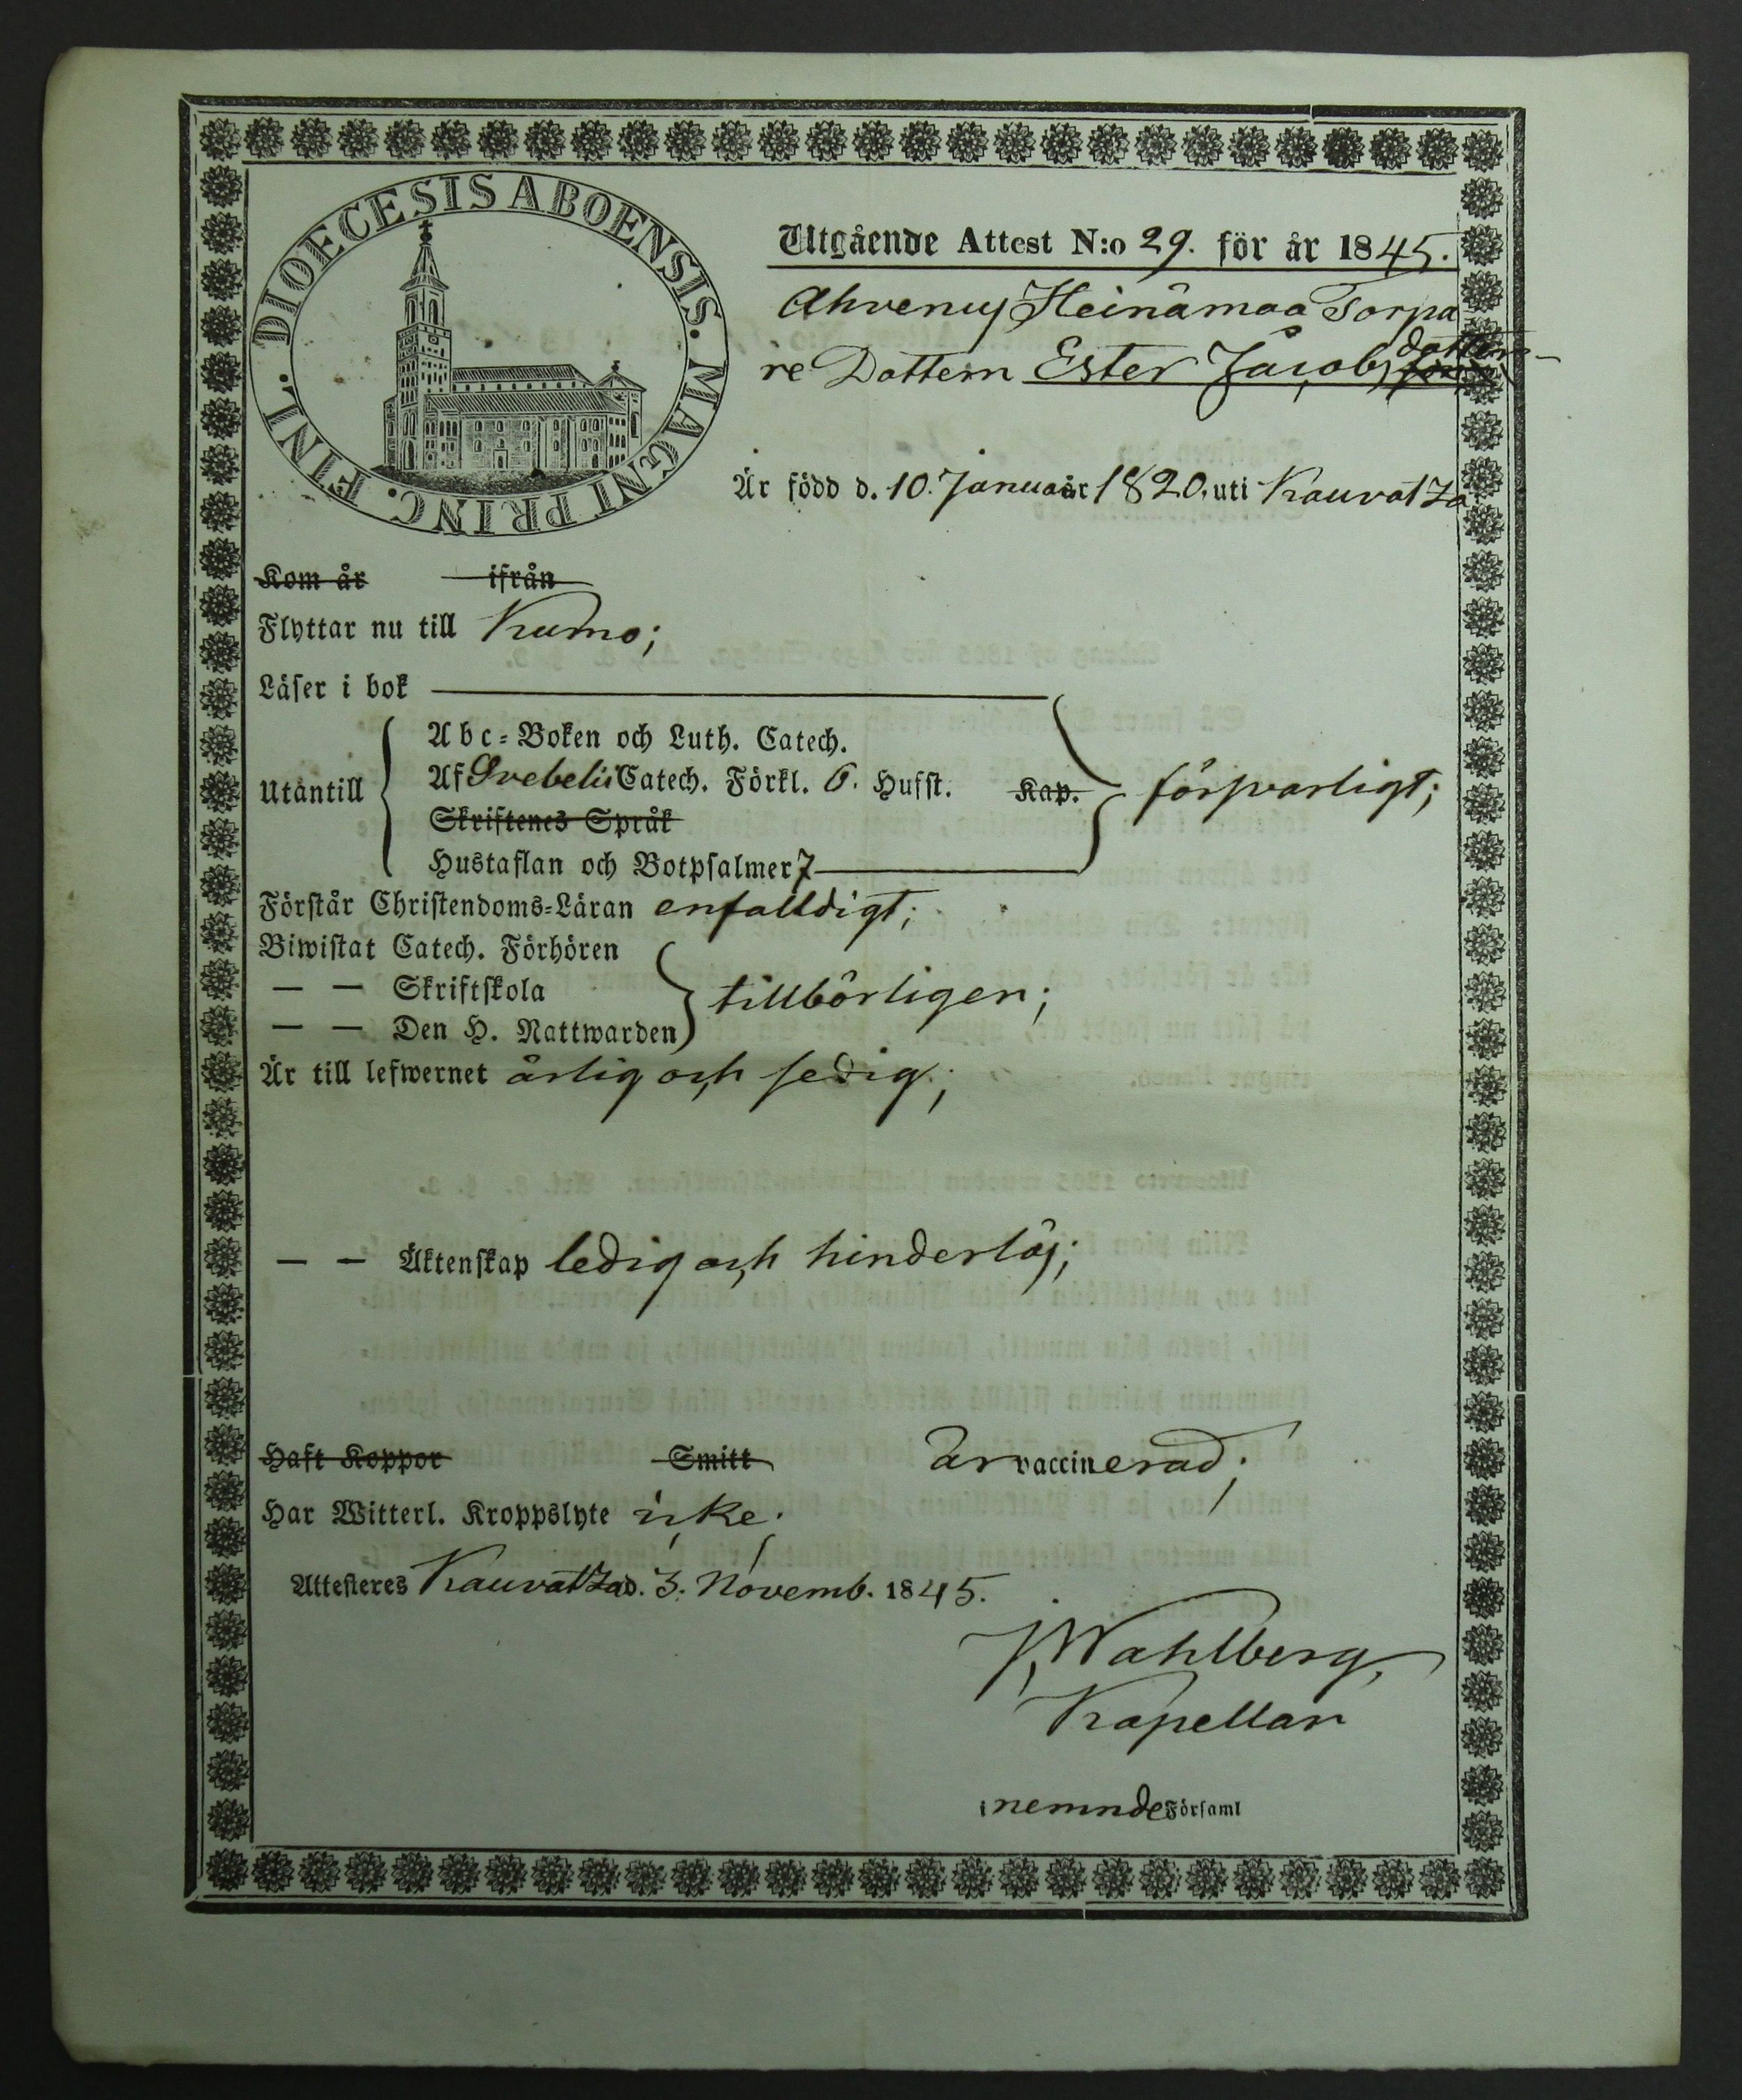 DIOECESIS ABOENSIS. MAGNI PRINC. FINL.
Utgående Attest N:o 29. för år 1845.
Ahvenus Heinämaa Torpa
re Dottern Ester Jacobs dotter
Är född d. 10. Januar 1820. uti Kauvatza
Kom år ifrån
Flyttar nu till Kumo;
Läser i bok
Abc-Boken och Luth. Catech.
Utantill
Af Svebelii Catech. Förkl. 6. Hufst. Kap. försvarligt;
Skriftenes Språk
Hustaflan och Botpsalmer 7
Förstår Christendoms-Läran enfalldigt;
Biwistat Catech. Förhören
— — Skriftskola tillbörligen;
— — Den H. Nattwarden
Är till lefwernet ärlig och sedig;
— — Äktenskap ledig och hinderlös;
Haft Koppor Smitt är vaccinerad;
Har Witterl. Kroppslyte icke.
Attesteres Kauvatza d. 3. Novemb. 1845.
J. Wahlberg,
Kapellan
i nemnde Församl